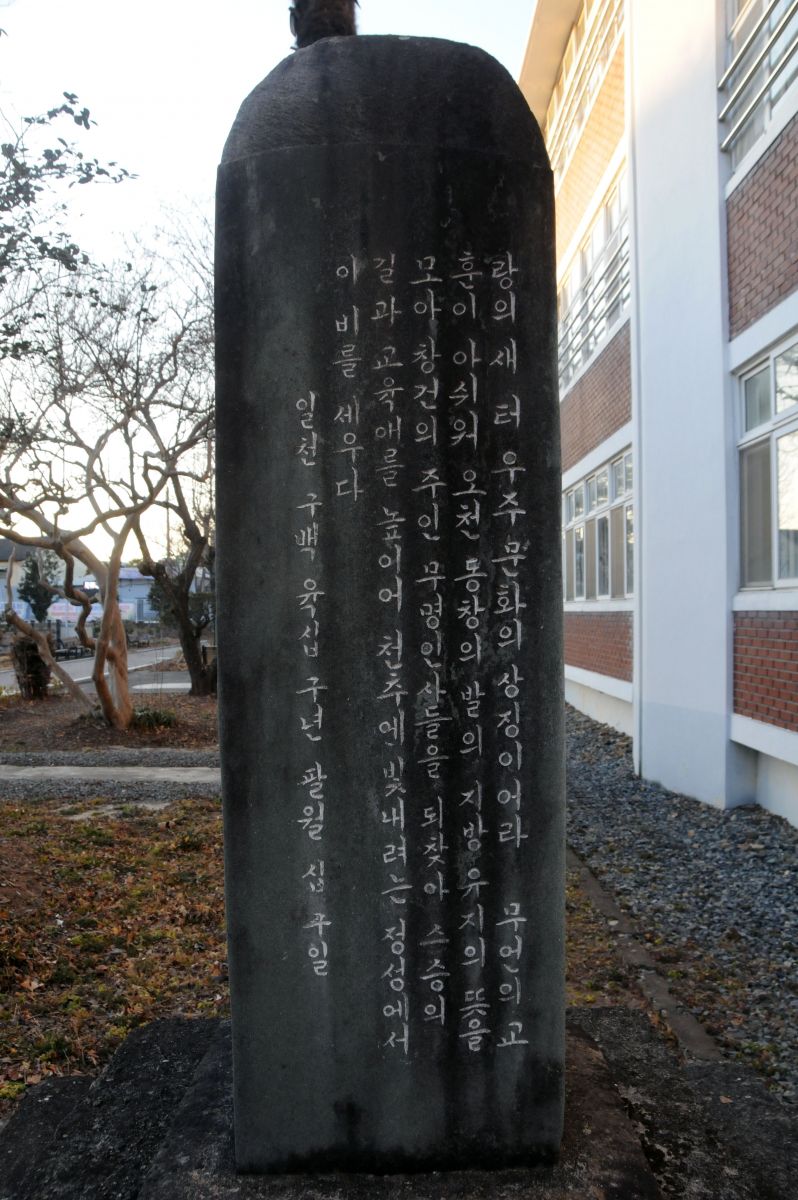 랑의 새 터 우주 문화의 상징이어라 무언의 교
훈이 아쉬워 오천 동창의 발의 지방 유지의 뜻을
모아 창건의 주인 무명인사들을 되찾아 스승의
길과 교육애를 높이어 천추에 빛내려는 정성에서
이 비를 세우다
일천 구백 육십 구년 팔월 십 구일